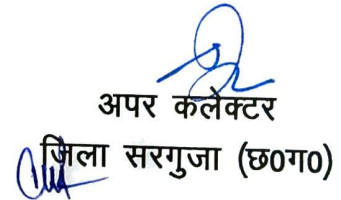 अपर कलेक्टर
जिला सरगुजा (छ0ग0)